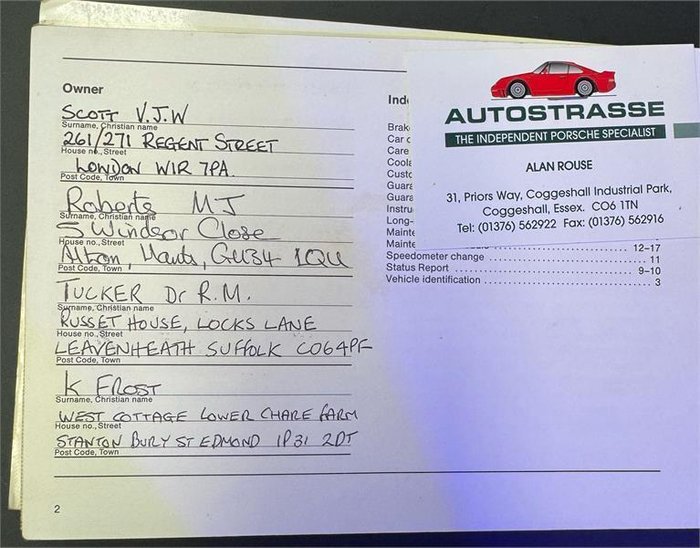 Owner
SCOTT V.J.W
Surname, Christian name
261/271 REGENT STREET
House no., Street
LONDON W1R 7PA.
Post Code, Town
Roberts MJ
Surname, Christian name
5 Windsor Close
House no., Street
Alton, Hants, GU34 1QU
Post Code, Town
TUCKER Dr R.M.
Surname, Christian name
RUSSET HOUSE, LOCKS LANE
House no., Street
LEAVENHEATH SUFFOLK CO64PF
Post Code, Town
K FROST
Surname, Christian name
WEST COTTAGE LOWER CHARE FARM
House no., Street
STANTON BURY ST EDMOND IP31 2DT
Post Code, Town
2
Ind
Brak
Car c
Care
Coola
Custo
Guara
Guara
Instru
Long-
Mainte
Mainte 12-17
Speedometer change 11
Status Report 9-10
Vehicle identification 3
AUTOSTRASSE
THE INDEPENDENT PORSCHE SPECIALIST
ALAN ROUSE
31, Priors Way, Coggeshall Industrial Park,
Coggeshall, Essex. CO6 1TN
Tel: (01376) 562922 Fax: (01376) 562916